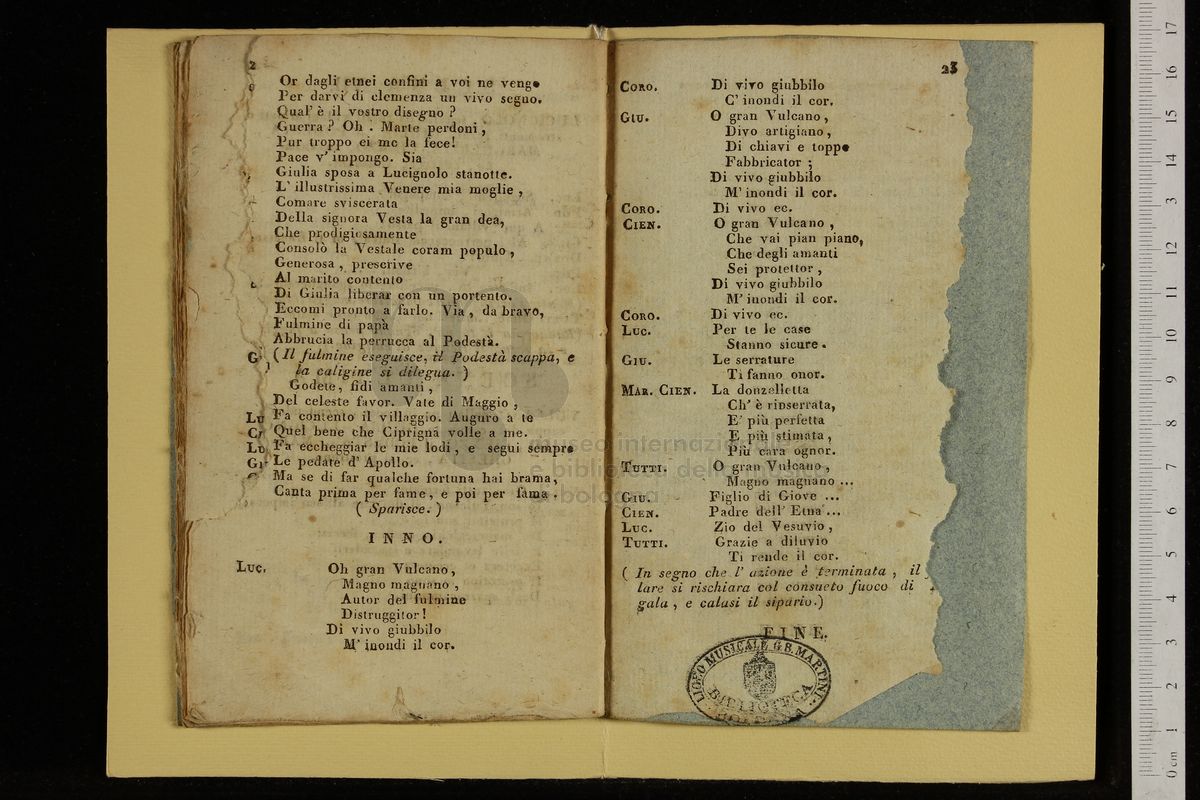 2
Or dagli etnei confini a voi ne vengo
Per darvi di clemenza un vivo segno.
Qual' è il vostro disegno ?
Guerra ? Oh . Marte perdoni ,
Pur troppo ei me la fece!
Pace v' impongo. Sia
Giulia sposa a Lucignolo stanotte.
L' illustrissima Venere mia moglie ,
Comare sviscerata
Della signora Vesta la gran dea,
Che prodigiosamente
Consolò la Vestale coram populo ,
Generosa , prescrive
Al marito contento
Di Giulia liberar con un portento.
Eccomi pronto a farlo. Via , da bravo,
Fulmine di papà
Abbrucia la perrucca al Podestà.
( Il fulmine eseguisce, il Podestà scappa, e
la caligine si dilegua. )
Godete, fidi amanti ,
Del celeste favor. Vate di Maggio ,
Fa contento il villaggio. Auguro a te
Quel bene che Ciprigna volle a me.
Fa eccheggiar le mie lodi , e segui sempre
Le pedate d' Apollo.
Ma se di far qualche fortuna hai brama,
Canta prima per fame, e poi per fama .
( Sparisce. )
INNO.
Luc. Oh gran Vulcano,
Magno magnano ,
Autor del fulmine
Distruggitor!
Di vivo giubbilo
M' inondi il cor.
23
Coro. Di vivo giubbilo
C' inondi il cor.
Giu. O gran Vulcano,
Divo artigiano,
Di chiavi e toppe
Fabbricator ;
Di vivo giubbilo
M' inondi il cor.
Coro. Di vivo ec.
Cien. O gran Vulcano ,
Che vai pian piano,
Che degli amanti
Sei protettor ,
Di vivo giubbilo
M' inondi il cor.
Coro. Di vivo ec.
Luc. Per te le case
Stanno sicure.
Giu. Le serrature
Ti fanno onor.
Mar. Cien. La donzelletta
Ch' è rinserrata,
E' più perfetta
E più stimata,
Più cara ognor.
Tutti. O gran Vulcano,
Magno magnano ...
Giu. Figlio di Giove ...
Cien. Padre dell' Etna ...
Luc. Zio del Vesuvio,
Tutti. Grazie a diluvio
Ti rende il cor.
( In segno che l' azione è terminata , il
lare si rischiara col consueto fuoco di
gala , e calasi il sipario.)
FINE.
LICEO MUSICALE G.B. MARTINI
BIBLIOTECA
museo internazionale
e biblioteca della musica
di bologna
0 cm 1 2 3 4 5 6 7 8 9 10 11 12 13 14 15 16 17